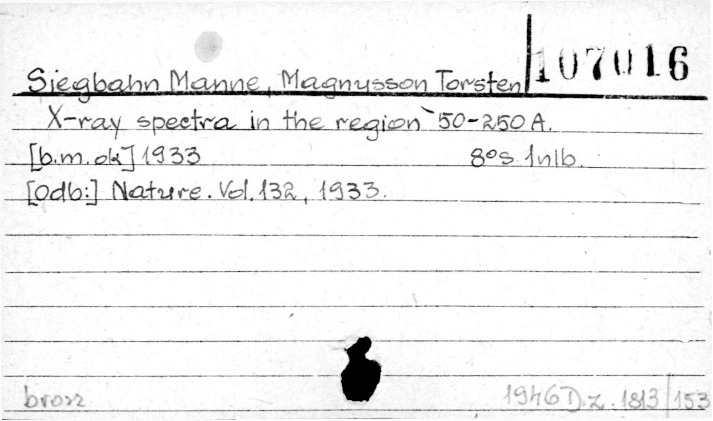 107016
Siegbahn Manne, Magnusson Torsten
X-ray spectra in the region 50-250 A.
[b.m.ok] 1933 8°s. 1nlb.
[Odb:] Nature. Vol. 132, 1933.
brosz 1946 D.z. 1813/153